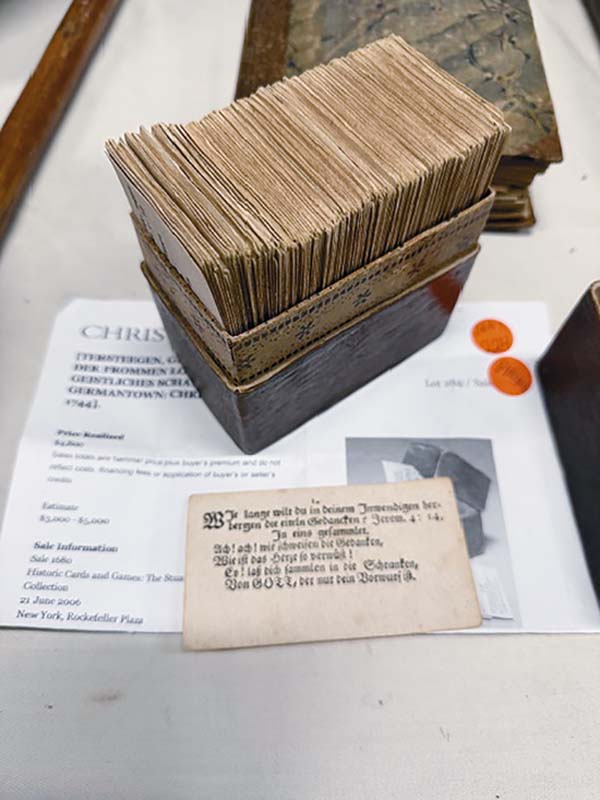 CHRIS
[TERSTEEGEN, G
DER FROMMEN LO
GEISTLICHES SCHA
GERMANTOWN: CHR
1744].
Lot
Price Realized
$4,800
Sales totals are hammer price plus buyer's premium and do not
reflect costs, financing fees or application of buyer's or seller's
credits.
Estimate
$3,000 - $5,000
Sale Information
Sale 1680
Historic Cards and Games: The Stua
Collection
21 June 2006
New York, Rockefeller Plaza
WIe lange wilt du in deinem Inwendigen her-
bergen die eiteln Gedancken? Jerem. 4: 14.
In eins gesammlet.
Ach! ach! wie schweifen die Gedancken,
Wie ist das Hertze so verwüst!
Ey! laß dich sammlen in die Schrancken,
Von GOTT, der nur dein Vorwurf ist.